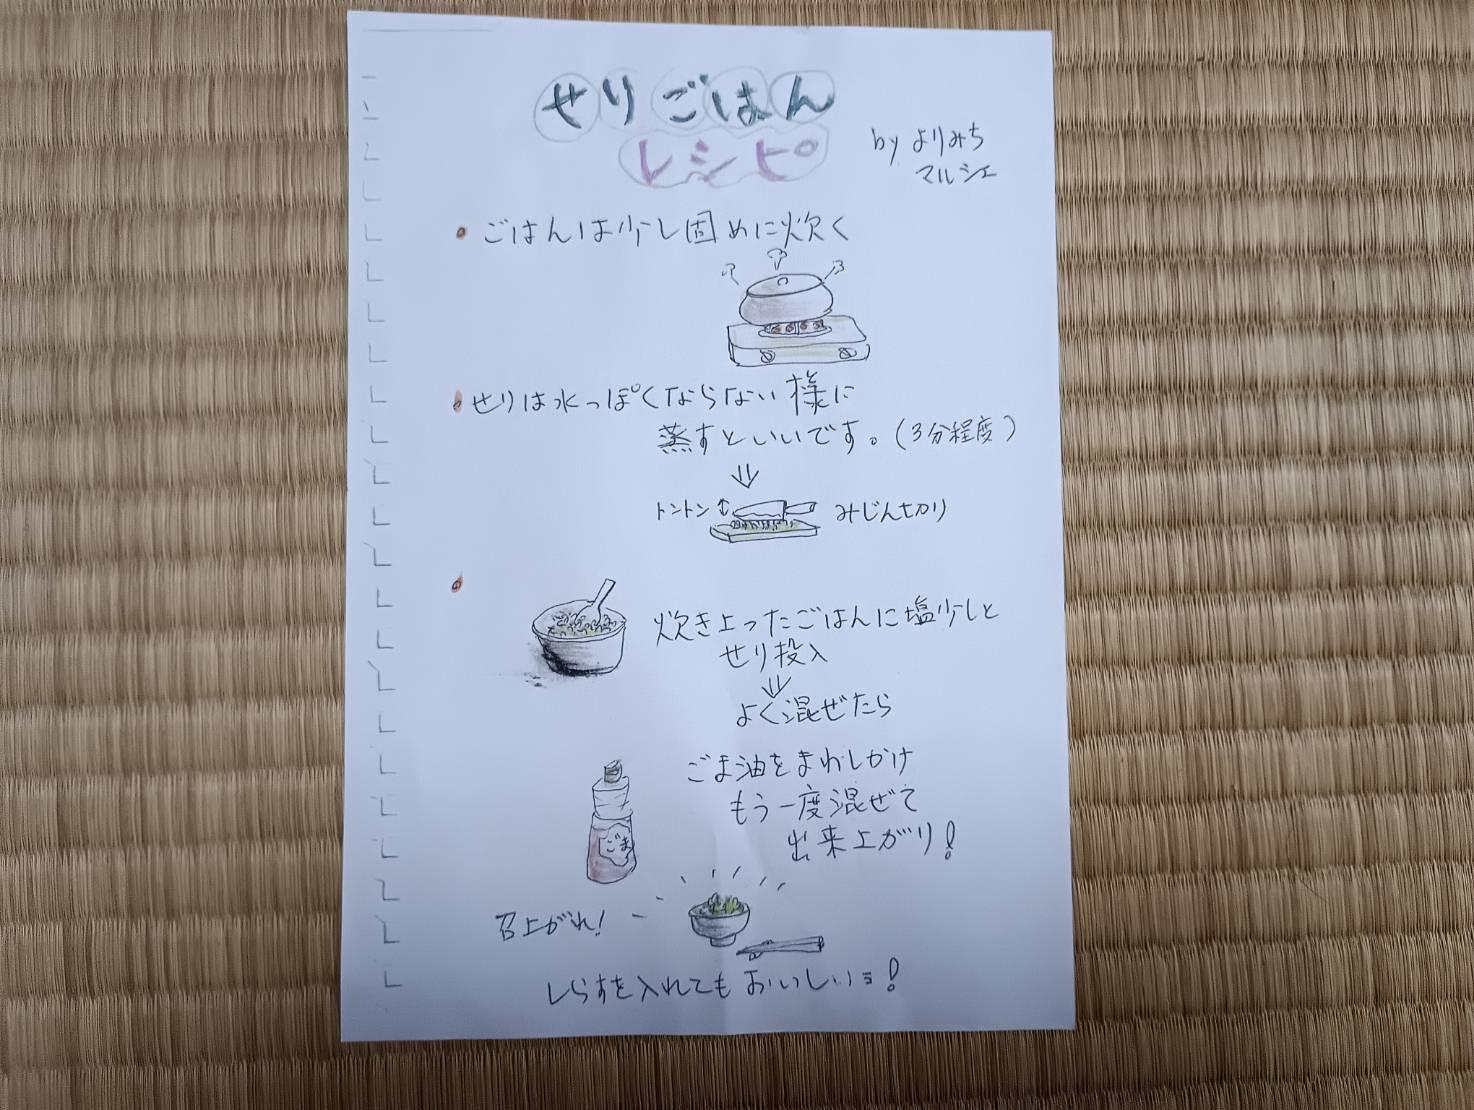 せりごはん
レシピ
by よりみち
マルシェ
• ごはんは少し固めに炊く
• せりは水っぽくならない様に
蒸すといいです。(3分程度)
⇓
トントン ↕
みじん切り
•
炊き上ったごはんに塩少しと
せり投入
⇓
よく混ぜたら
ごま油をまわしかけ
もう一度混ぜて
出来上がり!
ごま
召上がれ!
しらすを入れてもおいしいョ!